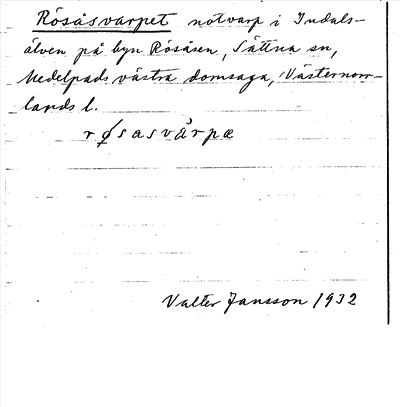 Rösåsvarpet notvarp i Indals-
älven på byn Rösåsen, Sättna sn,
Medelpads västra domsaga, Västernorr-
lands l.
røsasvårpæ
Valter Jansson 1932